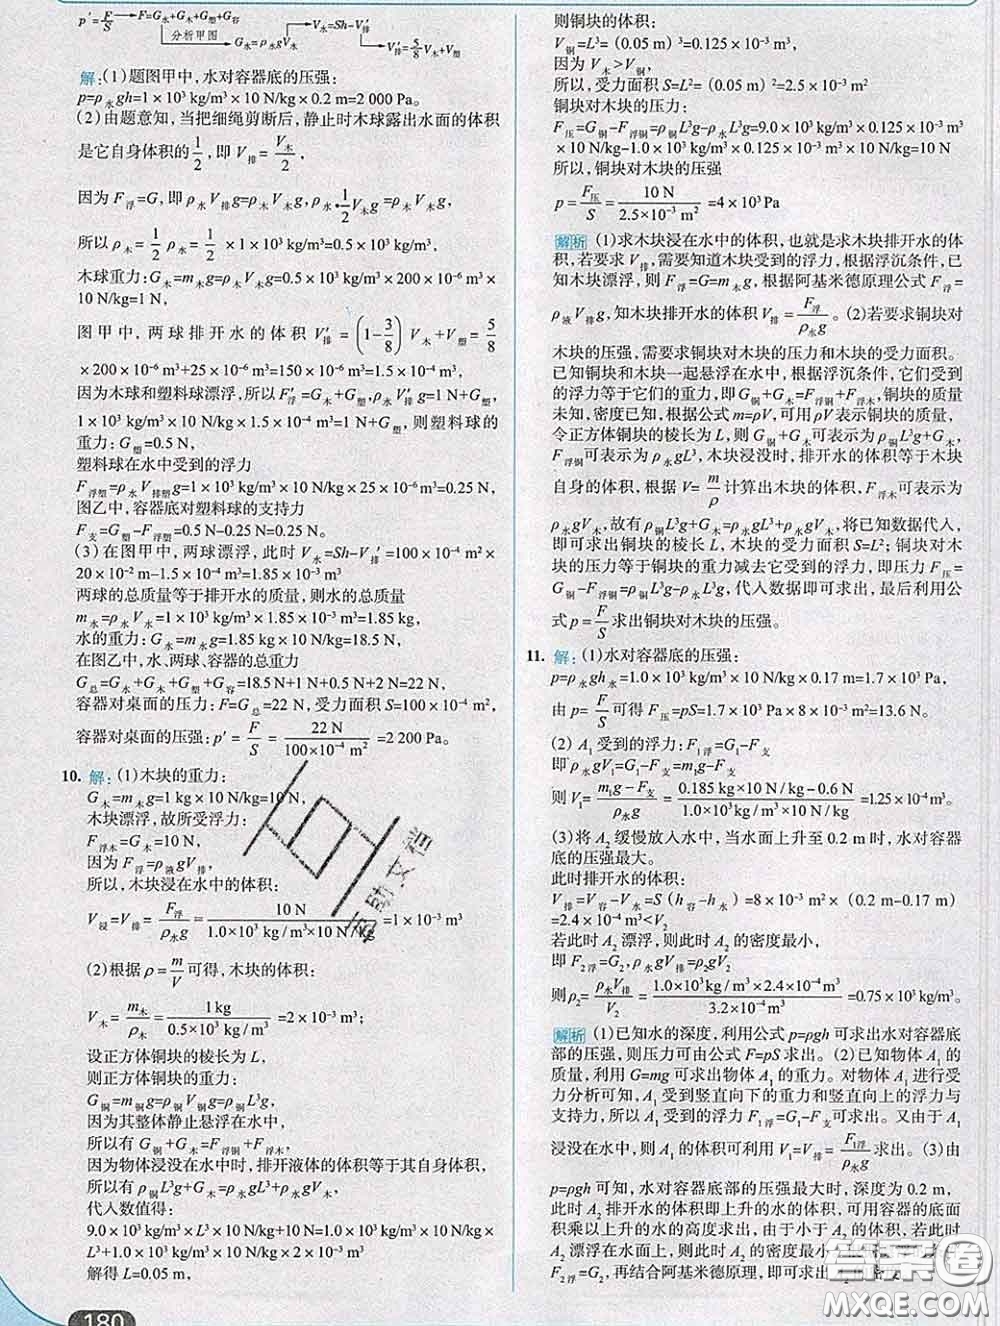 p′=F/S→F=G水+G木+G塑+G容
分析甲图
G水=ρ水gV水→V水=Sh-V′排→V′排=5/8 V木+V塑
解:(1)题图甲中,水对容器底的压强:
p=ρ水gh=1×10³ kg/m³×10 N/kg×0.2 m=2 000 Pa。
(2)由题意知,当把细绳剪断后,静止时木球露出水面的体积
是它自身体积的1/2,即V排=V木/2,
因为F浮=G,即ρ水V排g=ρ木V木g,ρ水·1/2V木g=ρ木V木g,
所以ρ木=1/2ρ水=1/2×1×10³ kg/m³=0.5×10³ kg/m³,
木球重力:G木=m木g=ρ木V木g=0.5×10³ kg/m³×200×10⁻⁶ m³×
10 N/kg=1 N,
图甲中,两球排开水的体积V′排=(1-3/8)V木+V塑=5/8
×200×10⁻⁶ m³+25×10⁻⁶ m³=150×10⁻⁶ m³=1.5×10⁻⁴ m³,
因为木球和塑料球漂浮,所以F′浮=G木+G塑,ρ水V′排g=1 N+G塑,
1×10³ kg/m³×10 N/kg×1.5×10⁻⁴ m³=1 N+G塑,则塑料球的
重力:G塑=0.5 N,
塑料球在水中受到的浮力
F浮塑=ρ水V排塑g=1×10³ kg/m³×10 N/kg×25×10⁻⁶ m³=0.25 N,
图乙中,容器底对塑料球的支持力
F支=G塑-F浮塑=0.5 N-0.25 N=0.25 N。
(3)在图甲中,两球漂浮,此时V水=Sh-V′排=100×10⁻⁴ m²×
20×10⁻² m-1.5×10⁻⁴ m³=1.85×10⁻³ m³
两球的总质量等于排开水的质量,则水的质量
m水=ρ水V水=1.0×10³ kg/m³×1.85×10⁻³ m³=1.85 kg,
水的重力:G水=m水g=1.85 kg×10 N/kg=18.5 N,
在图乙中,水、两球、容器的总重力
G总=G水+G木+G塑+G容=18.5 N+1 N+0.5 N+2 N=22 N,
容器对桌面的压力:F=G总=22 N,受力面积S=100×10⁻⁴ m²,
容器对桌面的压强:p′=F/S=22 N/100×10⁻⁴ m²=2 200 Pa。
10. 解:(1)木块的重力:
G木=m木g=1 kg×10 N/kg=10 N,
木块漂浮,故所受浮力:
F浮木=G木=10 N,
因为F浮=ρ液gV排,
所以,木块浸在水中的体积:
V浸=V排=F浮/ρ水g=10 N/1.0×10³ kg/m³×10 N/kg=1×10⁻³ m³
(2)根据ρ=m/V可得,木块的体积:
V木=m木/ρ木=1 kg/0.5×10³ kg/m³=2×10⁻³ m³;
设正方体铜块的棱长为L,
则正方体铜块的重力:
G铜=m铜g=ρ铜V铜g=ρ铜L³g,
因为其整体静止悬浮在水中,
所以有G铜+G木=F浮铜+F浮木,
因为物体浸没在水中时,排开液体的体积等于其自身的体积,
所以有ρ铜L³g+G木=ρ水gL³+ρ水gV木,
代入数值得:
9.0×10³ kg/m³×L³×10 N/kg+10 N=1.0×10³ kg/m³×10 N/kg
×L³+1.0×10³ kg/m³×10 N/kg×2×10⁻³ m³
解得L=0.05 m,
180
则铜块的体积:
V铜=L³=(0.05 m)³=0.125×10⁻³ m³,
因为V木>V铜,
所以,受力面积S=L²=(0.05 m)²=2.5×10⁻³ m²
铜块对木块的压力:
F压=G铜-F浮铜=ρ铜L³g-ρ水L³g=9.0×10³ kg/m³×0.125×10⁻³ m³
×10 N/kg-1.0×10³ kg/m³×0.125×10⁻³ m³×10 N/kg=10 N
所以,铜块对木块的压强
p=F压/S=10 N/2.5×10⁻³ m²=4×10³ Pa
解析 (1)求木块浸在水中的体积,也就是求木块排开水的体
积,若要求V排,需要知道木块受到的浮力,根据浮沉条件,已
知木块漂浮,则F浮=G=m木g,根据阿基米德原理公式F浮=
ρ液V排g,知木块排开水的体积V排=F浮/ρ水g。(2)若要求铜块对
木块的压强,需要求铜块对木块的压力和木块的受力面积。
已知铜块和木块一起悬浮在水中,根据浮沉条件,它们受到
的浮力等于它们的重力,即G铜+G木=F浮铜+F浮木,铜块的质量
未知,密度已知,根据公式m=ρV,可用ρV表示铜块的质量,
令正方体铜块的棱长为L,则G铜+G木可表示为ρ铜L³g+G木,
F浮铜可表示为ρ水gL³,木块浸没时,排开水的体积等于木块
自身的体积,根据V=m/ρ计算出木块的体积,F浮木可表示为
ρ水gV木,故有ρ铜L³g+G木=ρ水gL³+ρ水gV木,将已知数据代入,
即可求出铜块的棱长L,木块的受力面积S=L²;铜块对木
块的压力等于铜块的重力减去它受到的浮力,即压力F压=
G铜-F浮铜=ρ铜L³g-ρ水L³g,代入数据即可求出,最后利用公
式p=F/S求出铜块对木块的压强。
11. 解:(1)水对容器底的压强:
p=ρ水gh水=1.0×10³ kg/m³×10 N/kg×0.17 m=1.7×10³ Pa,
由p=F/S可得F压=pS=1.7×10³ Pa×8×10⁻³ m²=13.6 N。
(2)A₁受到的浮力:F₁浮=G₁-F支
即ρ水gV₁=G₁-F支=m₁g-F支,
则V₁=m₁g-F支/ρ水g=0.185 kg×10 N/kg-0.6 N/1.0×10³ kg/m³×10 N/kg=1.25×10⁻⁴ m³。
(3)将A₂缓慢放入水中,当水面上升至0.2 m时,水对容器
底的压强最大。
此时排开水的体积:
V排=V容-V水=S(h容-h水)=8×10⁻³ m²×(0.2 m-0.17 m)
=2.4×10⁻⁴ m³<V₂
若此时A₂漂浮,则此时A₂的密度最小,
即F₂浮=G₂,ρ水gV排=ρ₂gV₂
则ρ₂=ρ水V排/V₂=1.0×10³ kg/m³×2.4×10⁻⁴ m³/3.2×10⁻⁴ m³=0.75×10³ kg/m³。
解析 (1)已知水的深度,利用公式p=ρgh可求出水对容器底
部的压强,则压力可由公式F=pS求出。(2)已知物体A₁的
质量,利用G=mg可求出物体A₁的重力。对物体A₁进行受
力分析可知,A₁受到竖直向下的重力和竖直向上的浮力与
支持力,所以A₁受到的浮力F₁浮=G₁-F支可求出。又由于A₁
浸没在水中,则A₁的体积可利用V₁=V排=F₁浮/ρ水g求出。(3)由
p=ρgh可知,水对容器底部的压强最大时,深度为0.2 m,此
时A₂排开水的体积即上升的水的体积,可用容器的底面
积乘以上升的水的高度求出,由于小于A₂的体积,若此时
A₂漂浮在水面上,则此时A₂的密度最小
F₂浮=G₂,再结合阿基米德原理,即可
答案圈
MXQE.COM